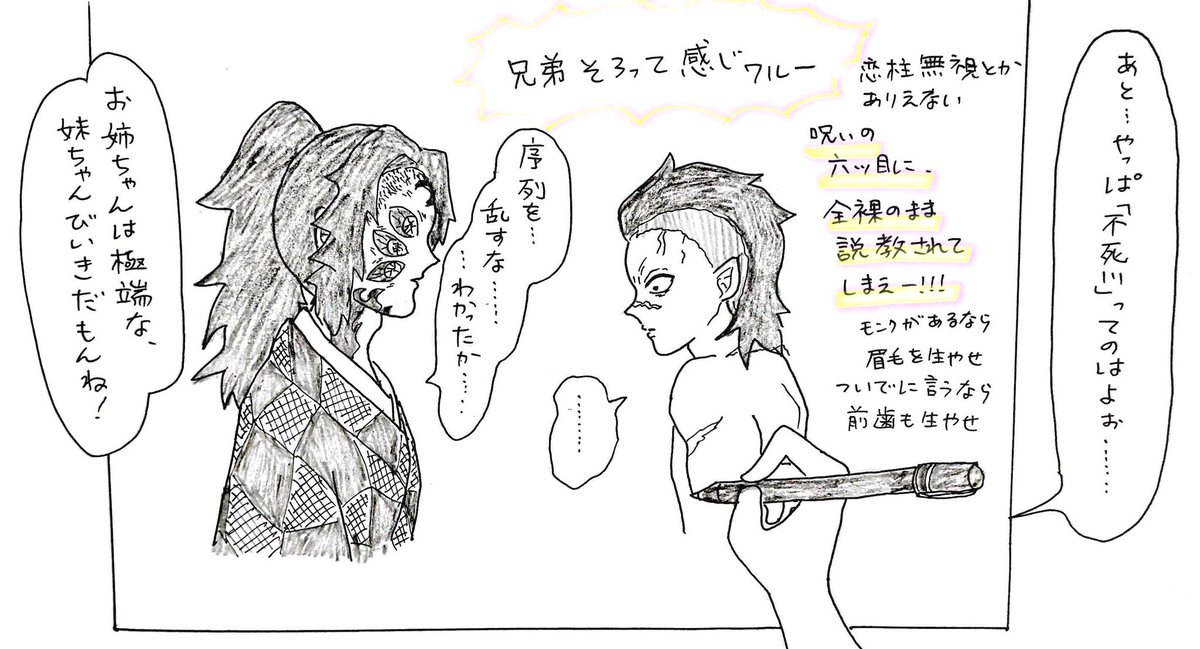 あと…やっぱ「不死川」ってのはよぉ……
恋柱無視とか
ありえない
呪いの
六ツ目に、
全裸のまま
説教されて
しまえー!!!
モンクがあるなら
眉毛を生やせ
ついでに言うなら
前歯も生やせ
兄弟そろって感じワルー
序列を…
乱すな……
…わかったか……
………
お姉ちゃんは極端な、
妹ちゃんびいきだもんね!